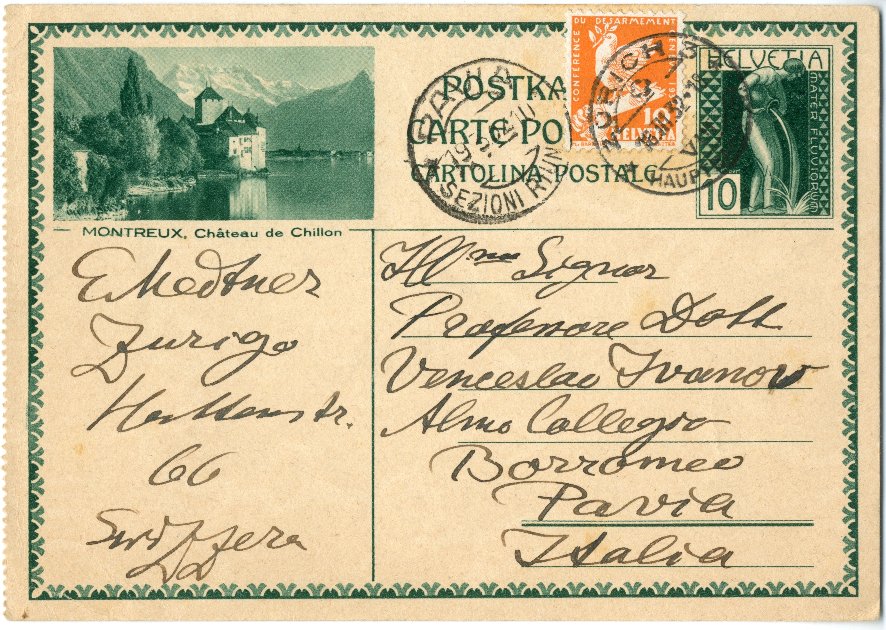 POSTKA
CARTE PO
CARTOLINA POSTALE
CONFÉRENCE
DU DÉSARMEMENT
10
HELVETIA
HELVETIA
MATER FLUVIORUM
10
PAVIA
SEZIONI RIUN
ZÜRICH 3
HAUPT
MONTREUX, Château de Chillon
E Medtner
Zurigo
str.
66
Svizzera
Ill mo Signor
Professore Dott
Venceslao Ivanow
Almo Collegio
Borromeo
Pavia
Italia